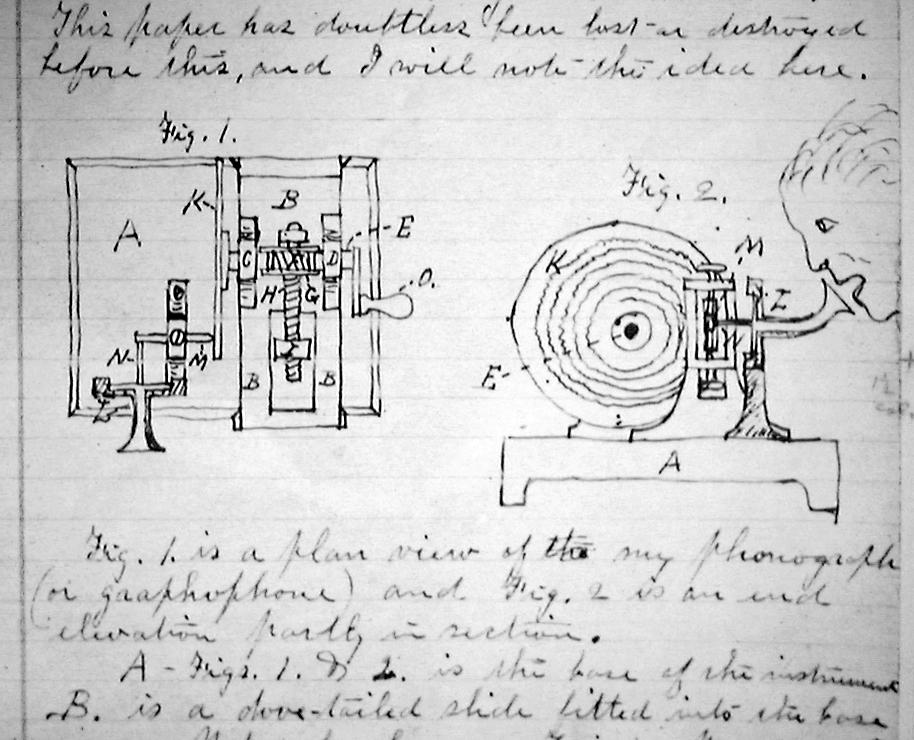 This paper has doubtless been lost or destroyed
before this, and I will note the idea here.
Fig. 1.
A
K
B
E
C
D
H
G
O.
N
M
B
B
L
Fig. 2.
K
M
I
N
E
A
Fig. 1. is a plan view of the my phonograph
(or gaaphophone) and Fig. 2 is an end
elevation partly in section.
A - Figs. 1. & 2. is the base of the instrument
B. is a dove-tailed slide fitted into the base